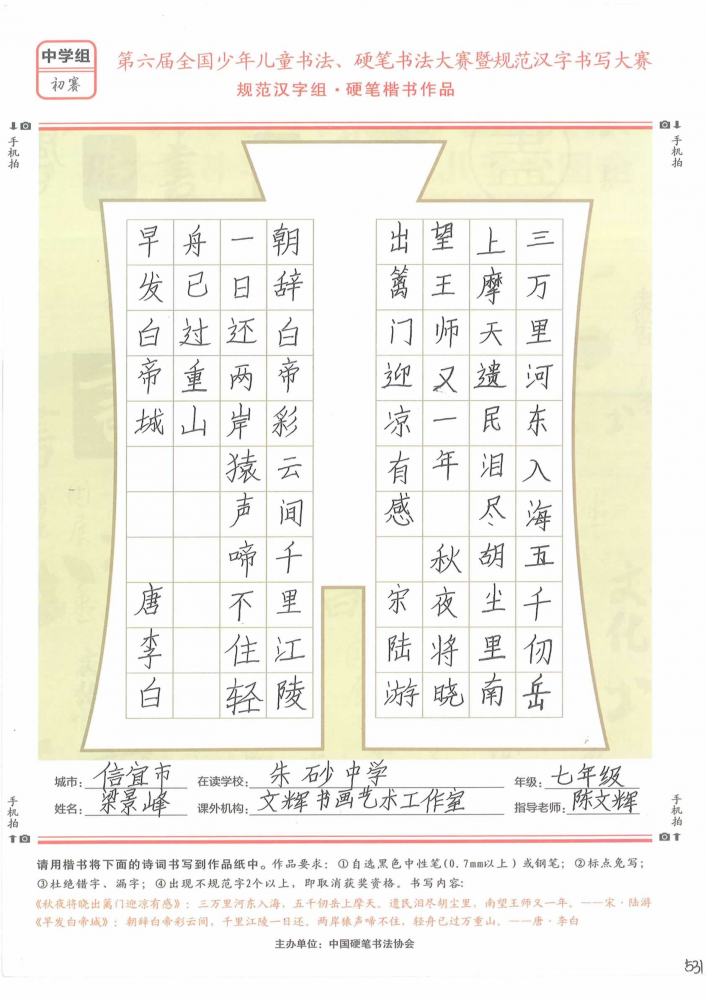 中学组
初赛
第六届全国少年儿童书法、硬笔书法大赛暨规范汉字书写大赛
规范汉字组·硬笔楷书作品
手机拍
手机拍
三万里河东入海五千仞岳
上摩天遗民泪尽胡尘里南
望王师又一年 秋夜将晓
出篱门迎凉有感 宋陆游
朝辞白帝彩云间千里江陵
一日还两岸猿声啼不住轻
舟已过重山
早发白帝城 唐李白
城市：信宜市 在读学校：朱砂中学 年级：七年级
姓名：梁景峰 课外机构：文辉书画艺术工作室 指导老师：陈文辉
手机拍
手机拍
请用楷书将下面的诗词书写到作品纸中。作品要求：①自选黑色中性笔(0.7mm以上)或钢笔；②标点免写；
③杜绝错字、漏字；④出现不规范字2个以上，即取消获奖资格。书写内容：
《秋夜将晓出篱门迎凉有感》：三万里河东入海，五千仞岳上摩天。遗民泪尽胡尘里，南望王师又一年。——宋·陆游
《早发白帝城》：朝辞白帝彩云间，千里江陵一日还。两岸猿声啼不住，轻舟已过万重山。——唐·李白
主办单位：中国硬笔书法协会
531